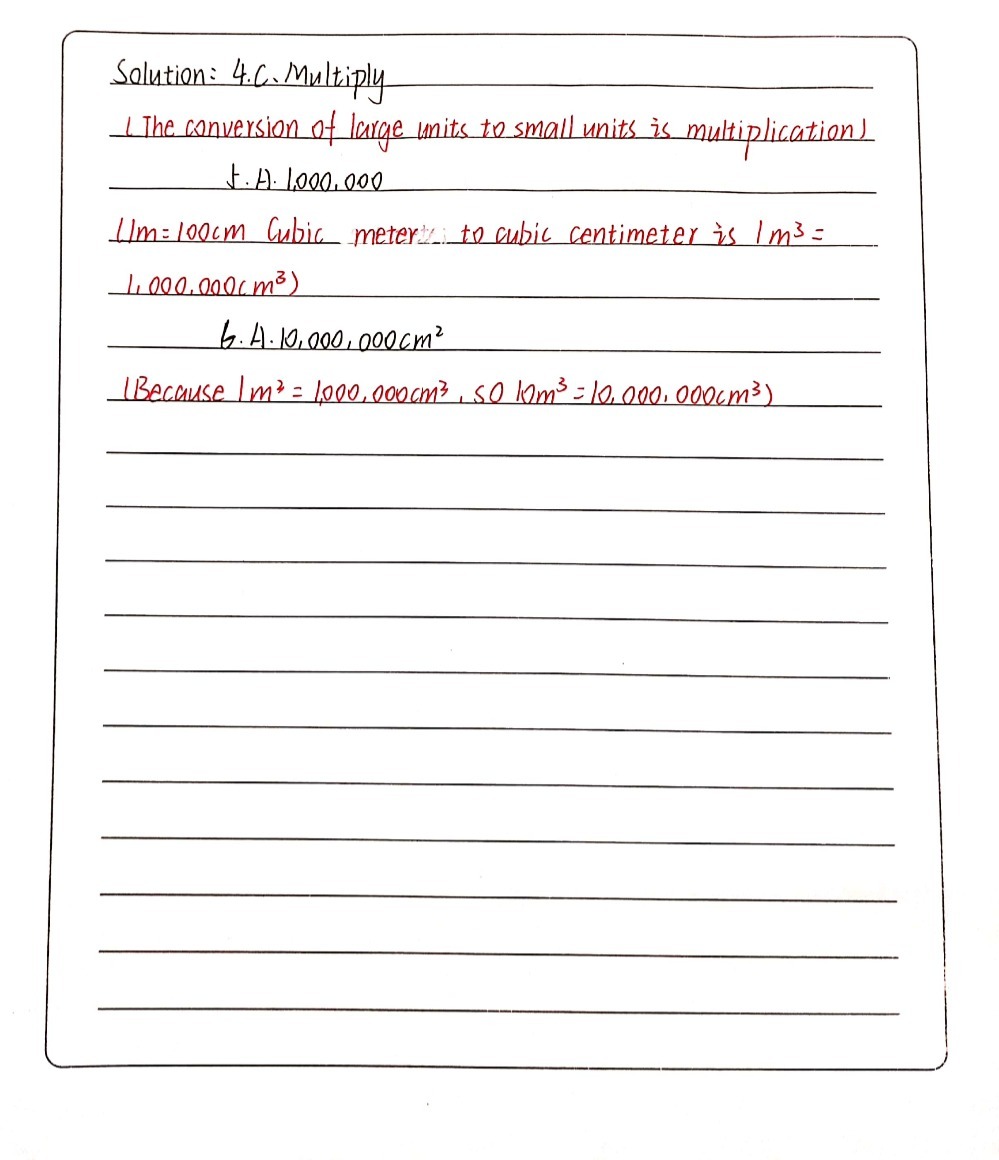 Solution: 4.C. Multiply
(The conversion of large units to small units is multiplication)
5.A. 1,000,000
(1m=100cm Cubic meter to cubic centimeter is 1m³=
1,000,000cm³)
6.A.10,000,000cm²
(Because 1m³=1,000,000cm³, so 10m³=10,000,000cm³)